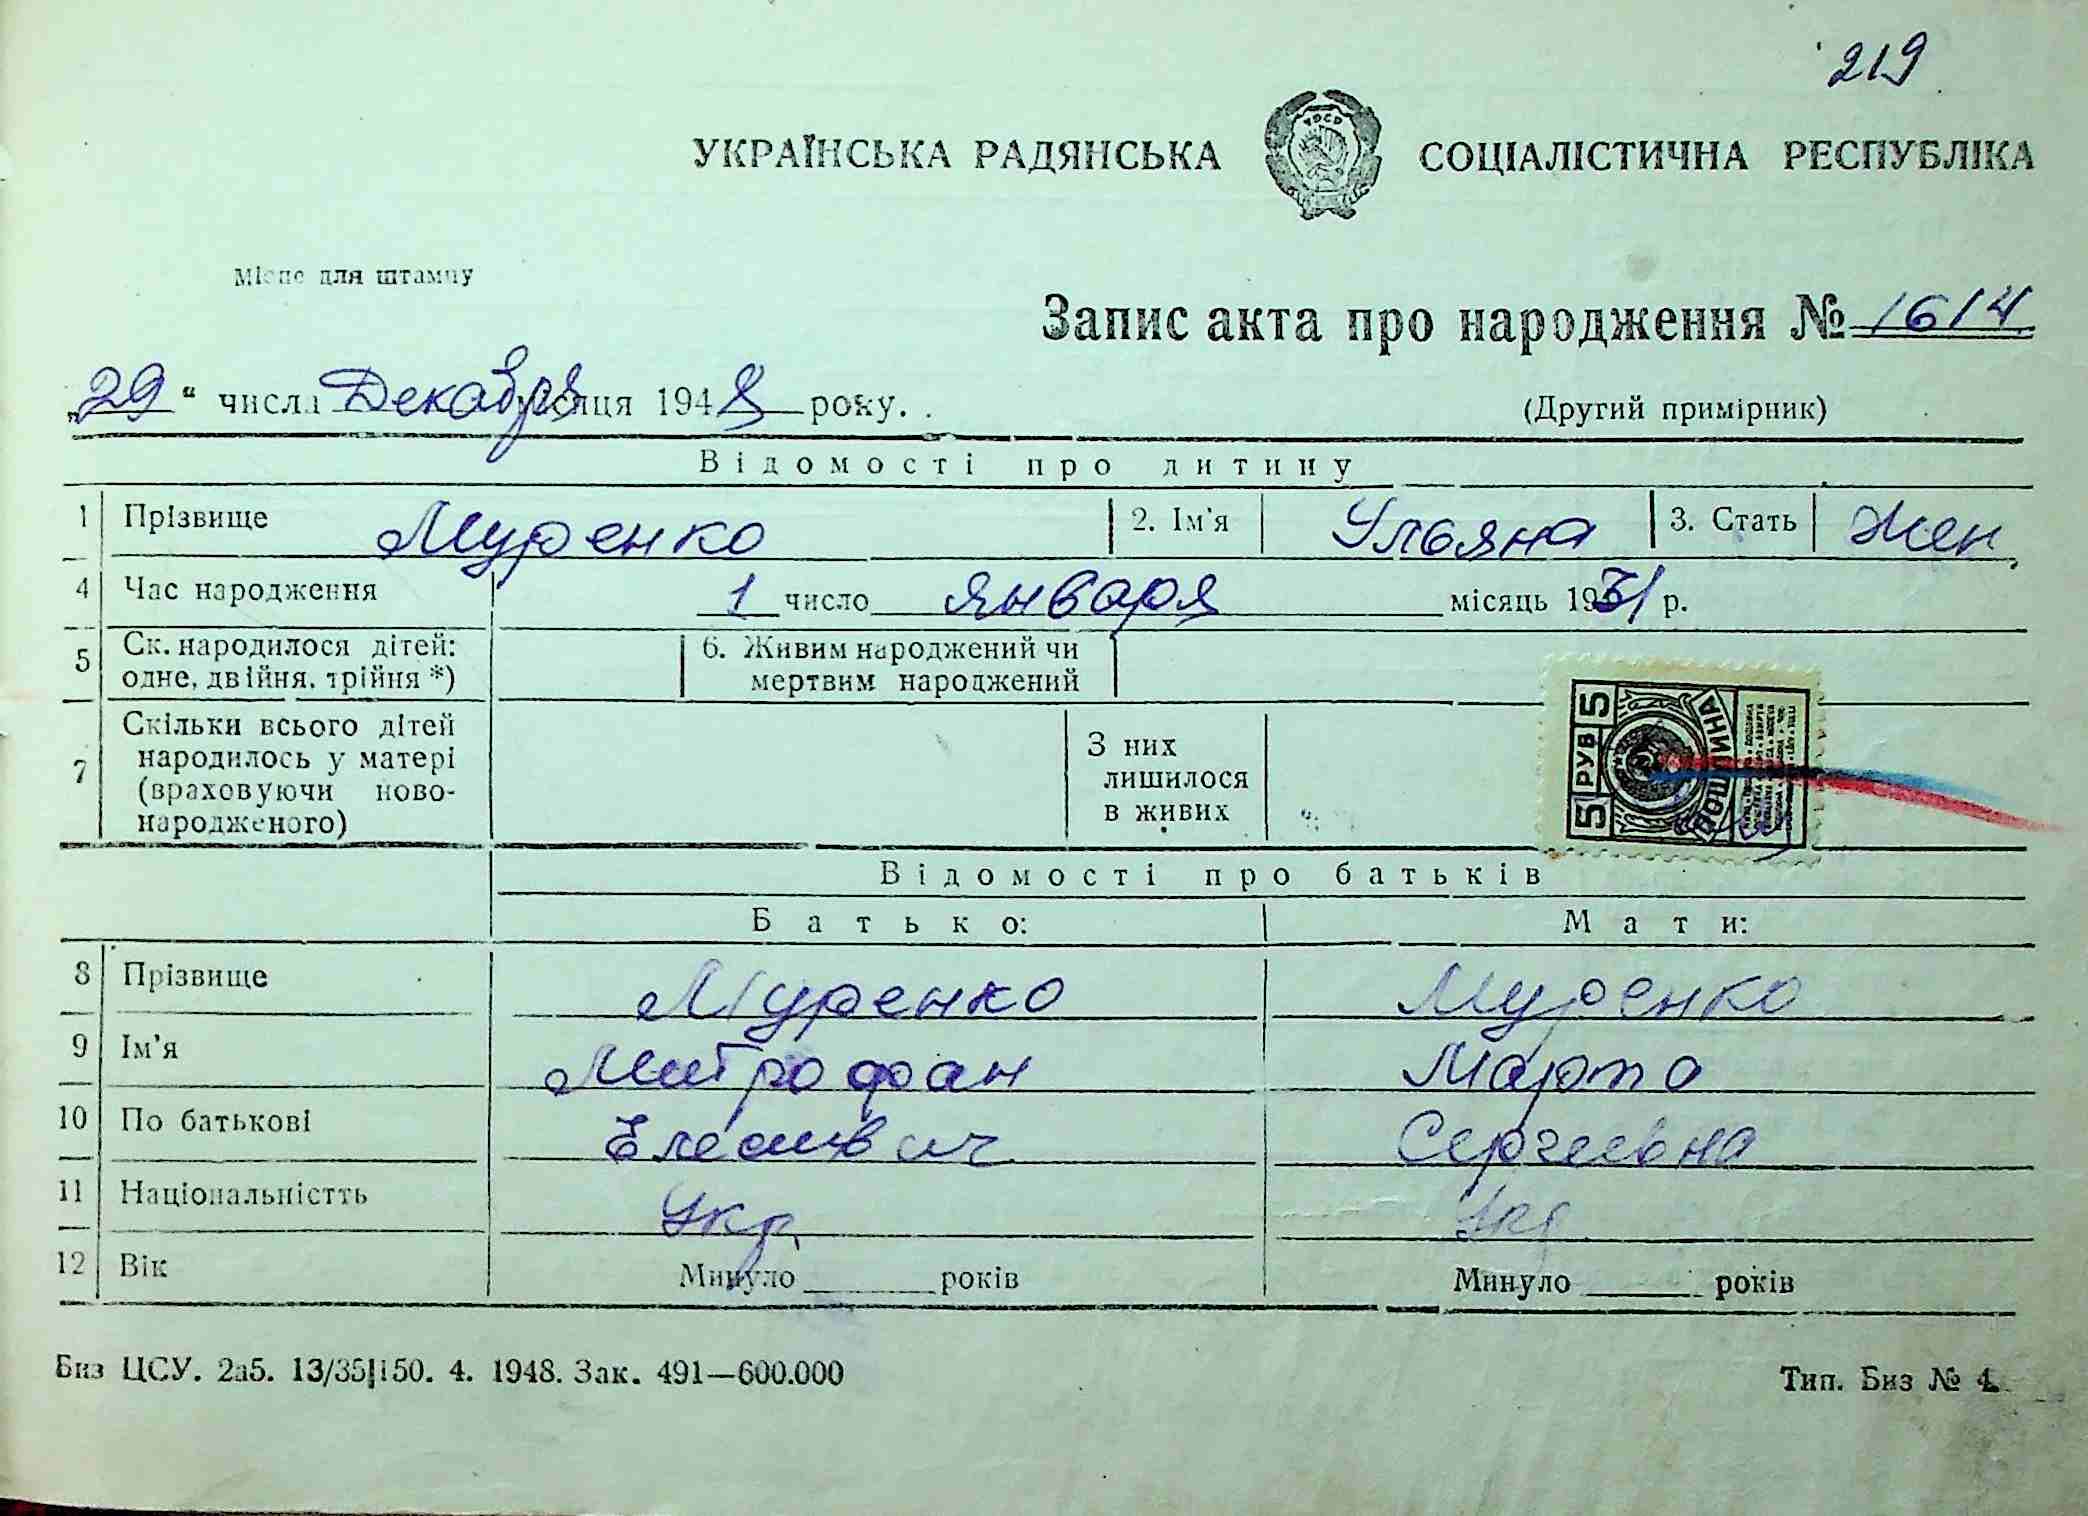 219
УКРАЇНСЬКА РАДЯНСЬКА СОЦІАЛІСТИЧНА РЕСПУБЛІКА
Місце для штампу
Запис акта про народження № 1614
„29“ числа Декабря місяця 1948 року.
(Другий примірник)
Відомості про дитину
1 Прізвище Муренко 2. Ім'я Ульяна 3. Стать Жен
4 Час народження 1 число января місяць 1931 р.
5 Ск. народилося дітей: одне, двійня, трійня *) 6. Живим народжений чи мертвим народжений
7 Скільки всього дітей народилось у матері (враховуючи новонародженого) З них лишилося в живих
5 РУБ 5 ПОШЛИНА
Відомості про батьків
Батько: Мати:
8 Прізвище Муренко Муренко
9 Ім'я Митрофан Марта
10 По батькові Сергеевна
11 Національністть Укр. Укр
12 Вік Минуло років Минуло років
Биз ЦСУ. 2а5. 13/35|150. 4. 1948. Зак. 491—600.000 Тип. Биз № 4.